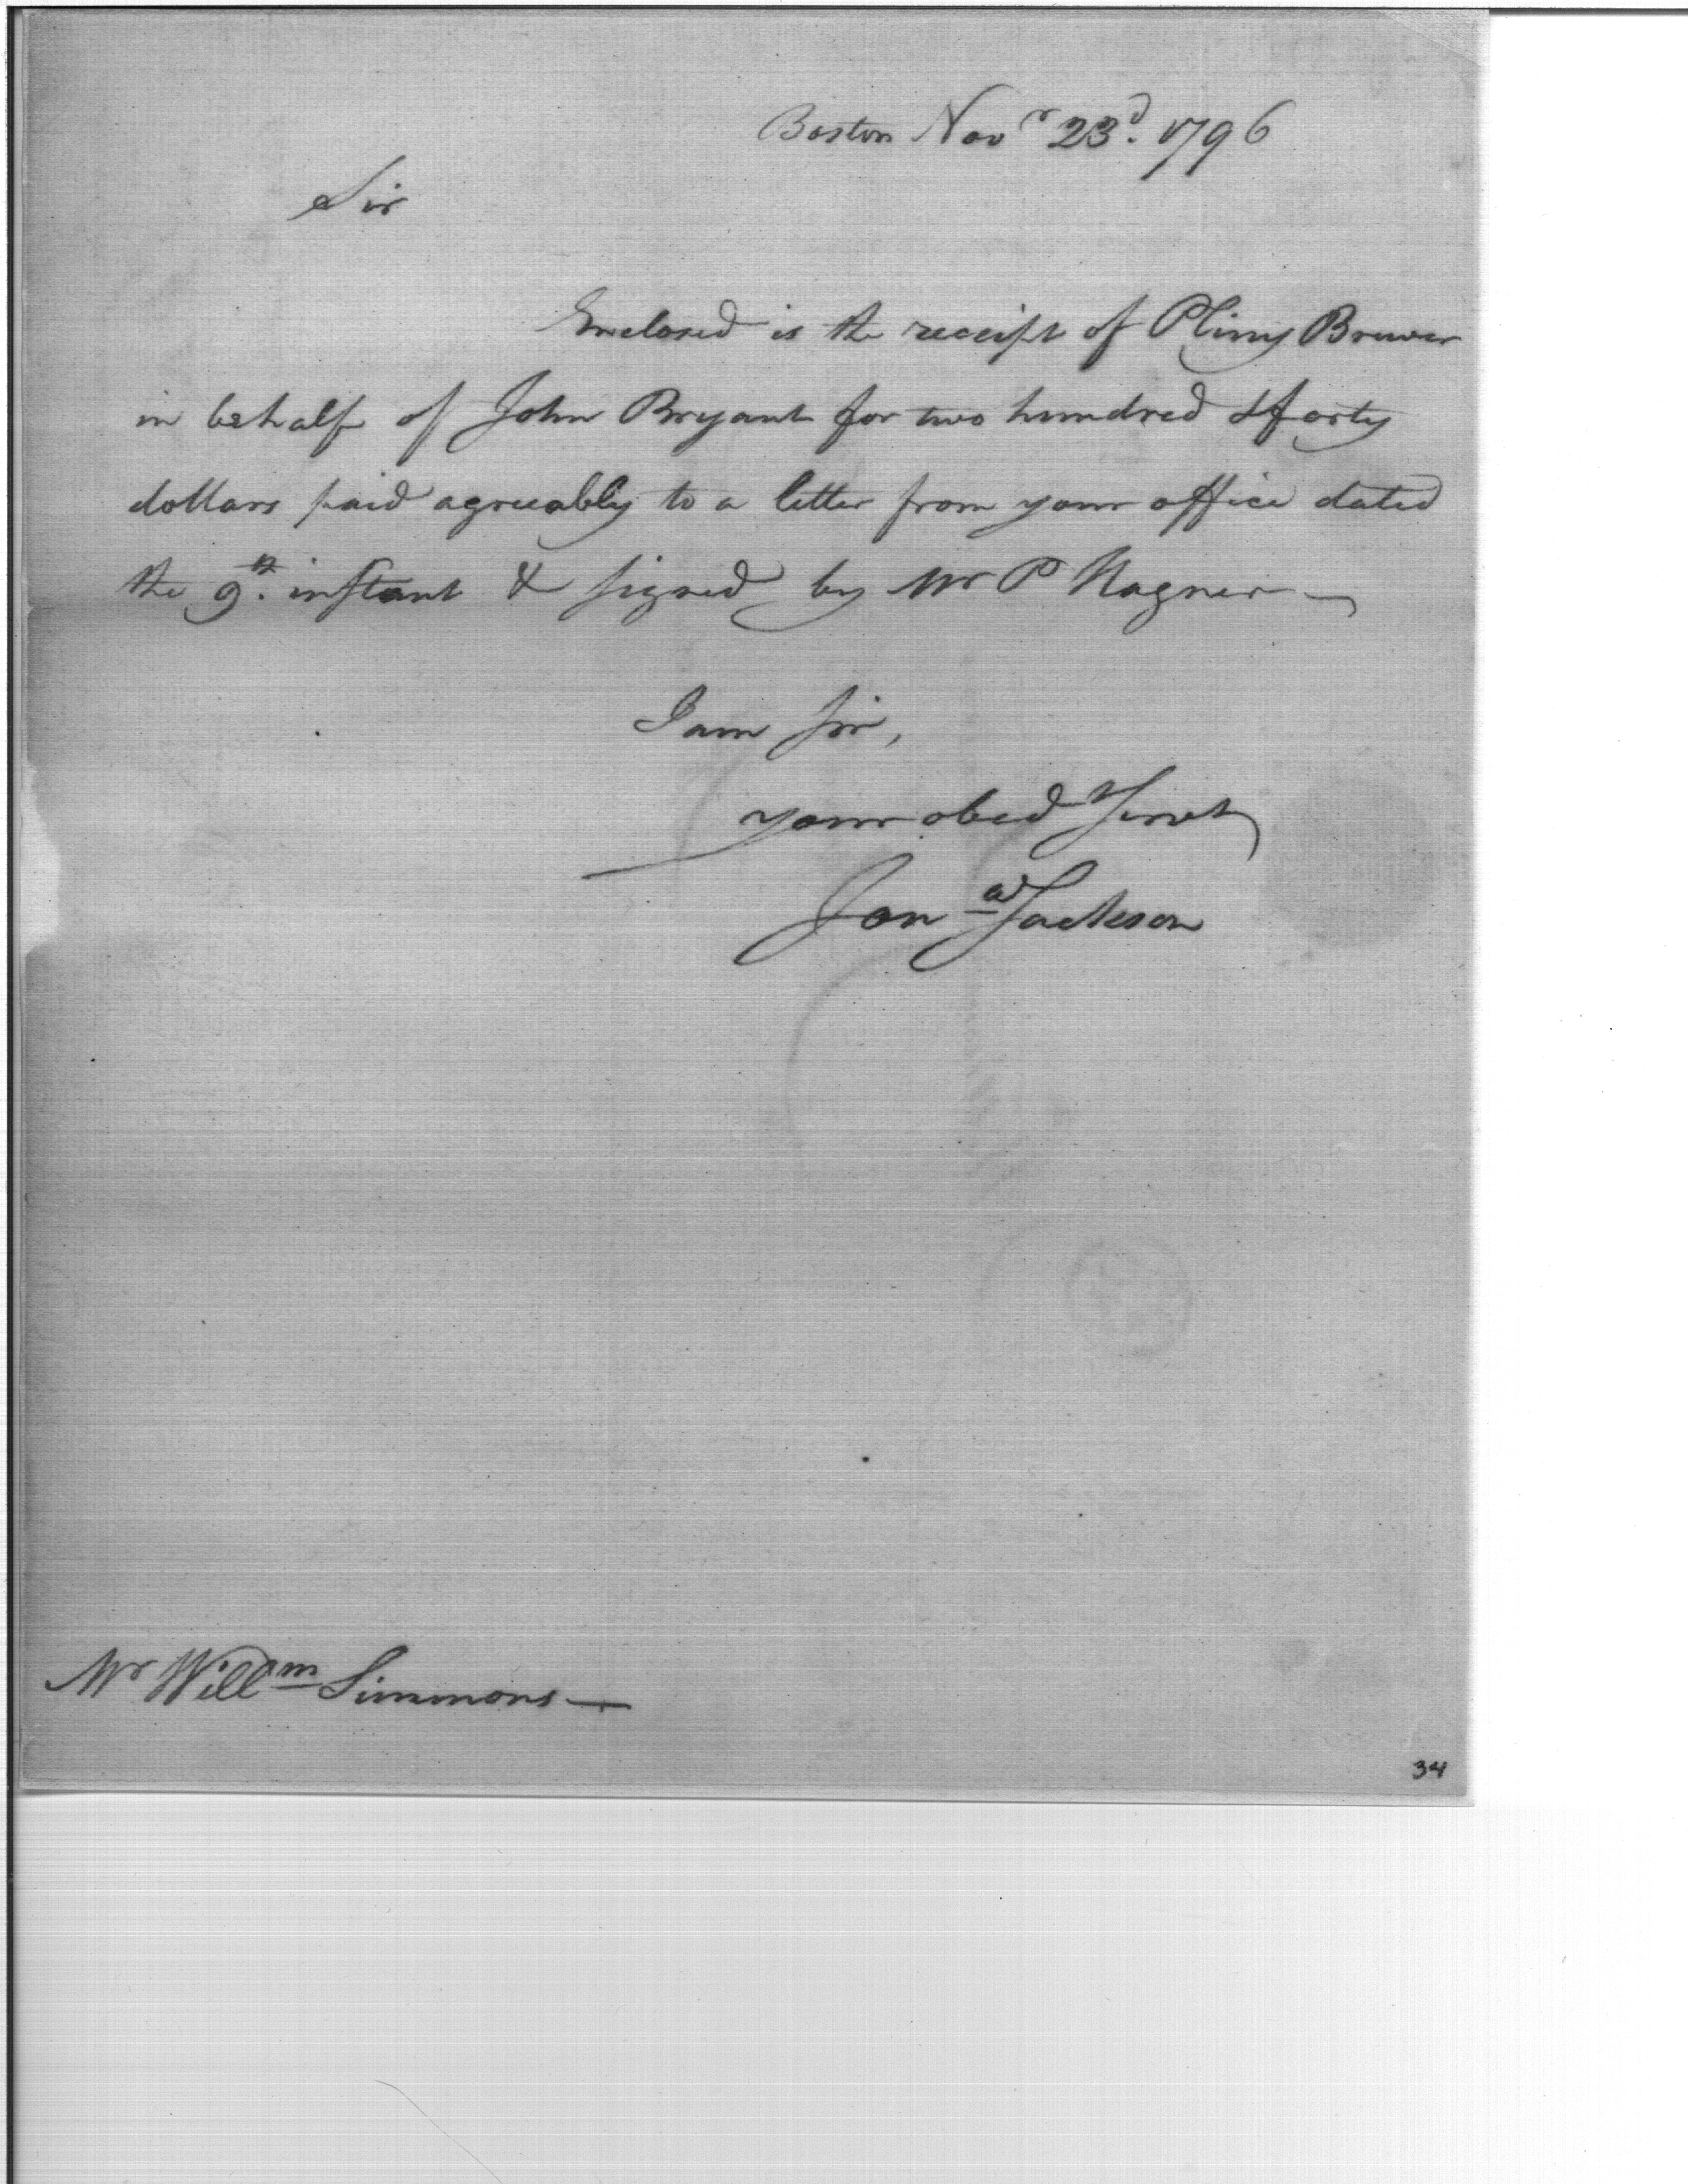 Boston Nov r 23d. 1796
Sir
Enclosed is the receipt of Pliny Brewer
in behalf of John Bryant for two hundred & forty
dollars paid agreeably to a letter from your office dated
the 9th. instant & signed by Mr P Nagner
I am sir,
your obed Servt
Jon a Jackson
Mr Willm Simmons
34